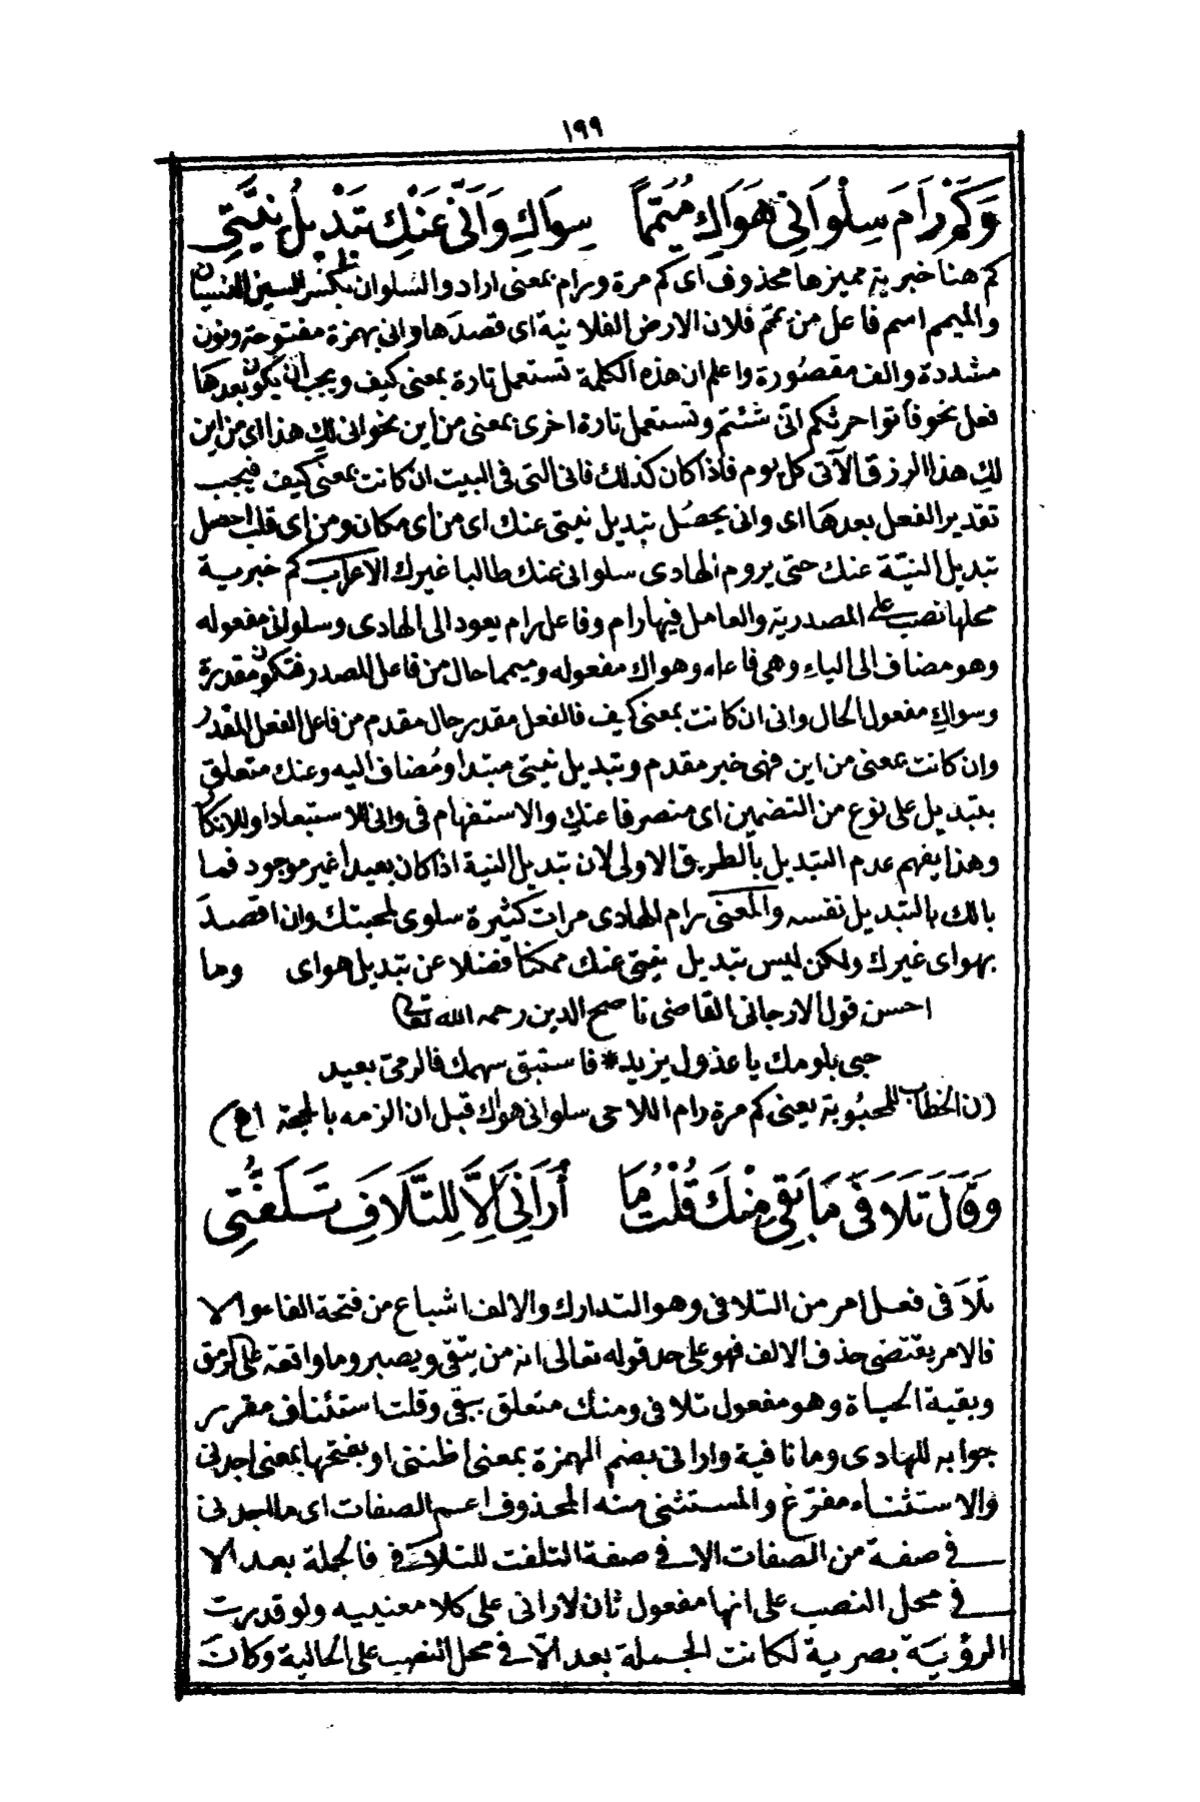 ١٩٩
وَكَمْ رَامَ سِلْوَانِي هَوَاكِ مُيَمِّمًا سِوَاكِ وَأَنَّى عَنْكِ تَبْدِيلُ نِيَّتِي
كم هنا خبرية مميزها محذوف اى كم مرة ورام بمعنى اراد والسلوان بكسر السين النسيان
والميمم اسم فاعل من يمّم فلان الارض الفلانية اى قصدها وانى بهمزة مفتوحة ونون
مشددة والف مقصورة واعلم ان هذه الكلمة تستعمل تارة بمعنى كيف ويجب ان يكون بعدها
فعل نحو فأتوا حرثكم انّى شئتم وتستعمل تارة اخرى بمعنى من اين نحو انى لك هذا اى من اين
لك هذا الرزق الآتى كل يوم فاذا كان كذلك فانى التى فى البيت ان كانت بمعنى كيف فيجب
تقدير الفعل بعدها اى وانى يحصل تبديل نيتى عنك اى من اى مكان ومن اى قلب احصل
تبديل النيّة عنك حتى يروم الهادى سلوانى عنك طالبا غيرك الاعراب كم خبرية
محلها نصب على المصدرية والعامل فيها رام وفاعل رام يعود الى الهادى وسلوانى مفعوله
وهو مضاف الى الياء وهى فاعله وهواك مفعوله وميمما حال من فاعل المصدر فتكون مقدرة
وسواك مفعول الحال وانى ان كانت بمعنى كيف فالفعل مقدر حال مقدم من فاعل الفعل المقدر
وان كانت بمعنى من اين فهى خبر مقدم وتبديل نيتى مبتدا ومضاف اليه وعنك متعلق
بتبديل على نوع من التضمين اى منصرفا عنك والاستفهام فى وانى للاستبعاد او للانكار
وهذا يفهم عدم التبديل بالطريق الاولى لان تبديل النية اذا كان بعيدا غير موجود فما
بالك بالتبديل نفسه والمعنى رام الهادى مرات كثيرة سلوى لمحبتك وان اقصد
بهواى غيرك ولكن ليس تبديل نيتى عنك ممكنا فضلا عن تبديل هواى وما
احسن قول الارجانى القاضى ناصح الدين رحمه الله تعالى
حبى بلومك يا عذول يزيد * فاستبق سهمك فالرمىّ بعيد
(ن الخطاب للمحبوبة يعنى كم مرة رام اللاحى سلوانى هواك قبل ان الزمه بالحجة اه)
وَقَالَ تَلَافَى مَا بَقِي مِنْكَ قُلْتُ مَا أُرَانِيَ إِلَّا لِلتَّلَافِ تَلَفُّتِي
تلافى فعل امر من التلافى وهو التدارك والالف اشباع من فتحة الفاء والا
فالامر يقتضى حذف الالف فهو على حد قوله تعالى انه من يتقى ويصبر وما واقعة على رمق
وبقية الحياة وهو مفعول تلافى ومنك متعلق ببقى وقلت استئناف مقرر
جوابه للهادى وما نافية وارانى بضم الهمزة بمعنى اظننى او بفتحها بمعنى اجدنى
والاستثناء مفرّغ والمستثنى منه المحذوف اعم الصفات اى ما اجدنى
فى صفة من الصفات الا فى صفة التلفت للتلاف فالجملة بعد الا
فى محل النصب على انها مفعول ثان لارانى على كلا معنييه ولو قدرت
الرؤية بصرية لكانت الجملة بعد الّا فى محل النصب على الحالية وكان